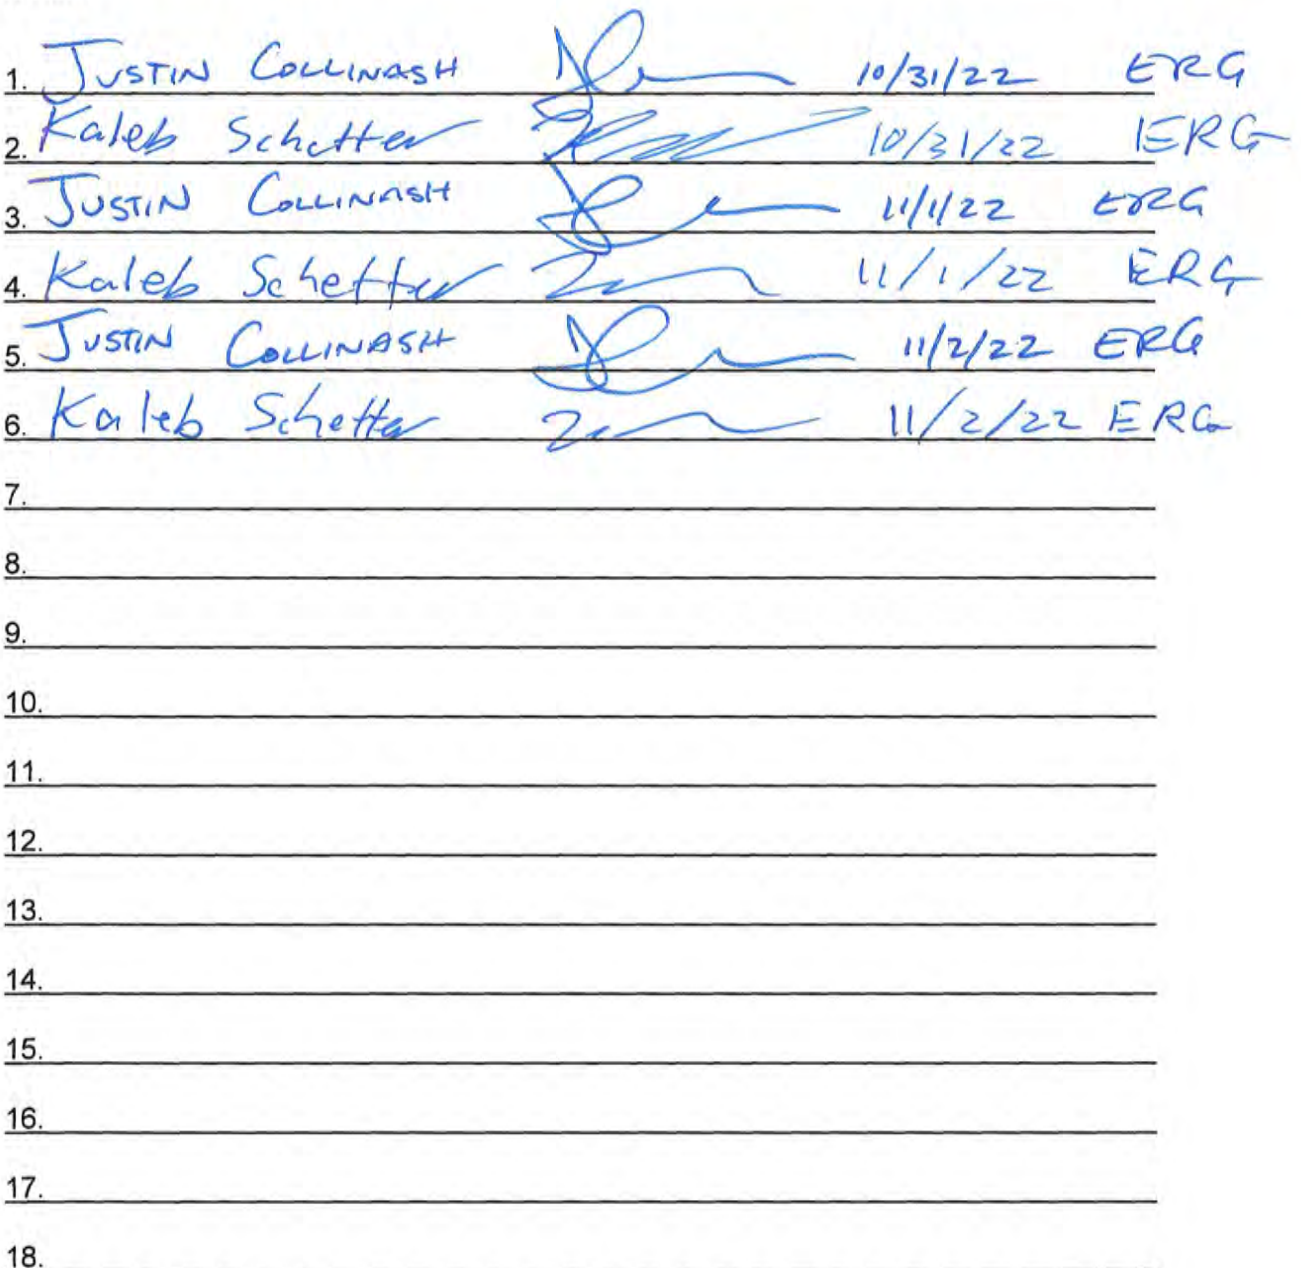 1. JUSTIN COLLINASH 10/31/22 ERG
2. Kaleb Schetter 10/31/22 ERG
3. JUSTIN COLLINASH 11/1/22 ERG
4. Kaleb Schetter 11/1/22 ERG
5. JUSTIN COLLINASH 11/2/22 ERG
6. Kaleb Schetter 11/2/22 ERG
7.
8.
9.
10.
11.
12.
13.
14.
15.
16.
17.
18.